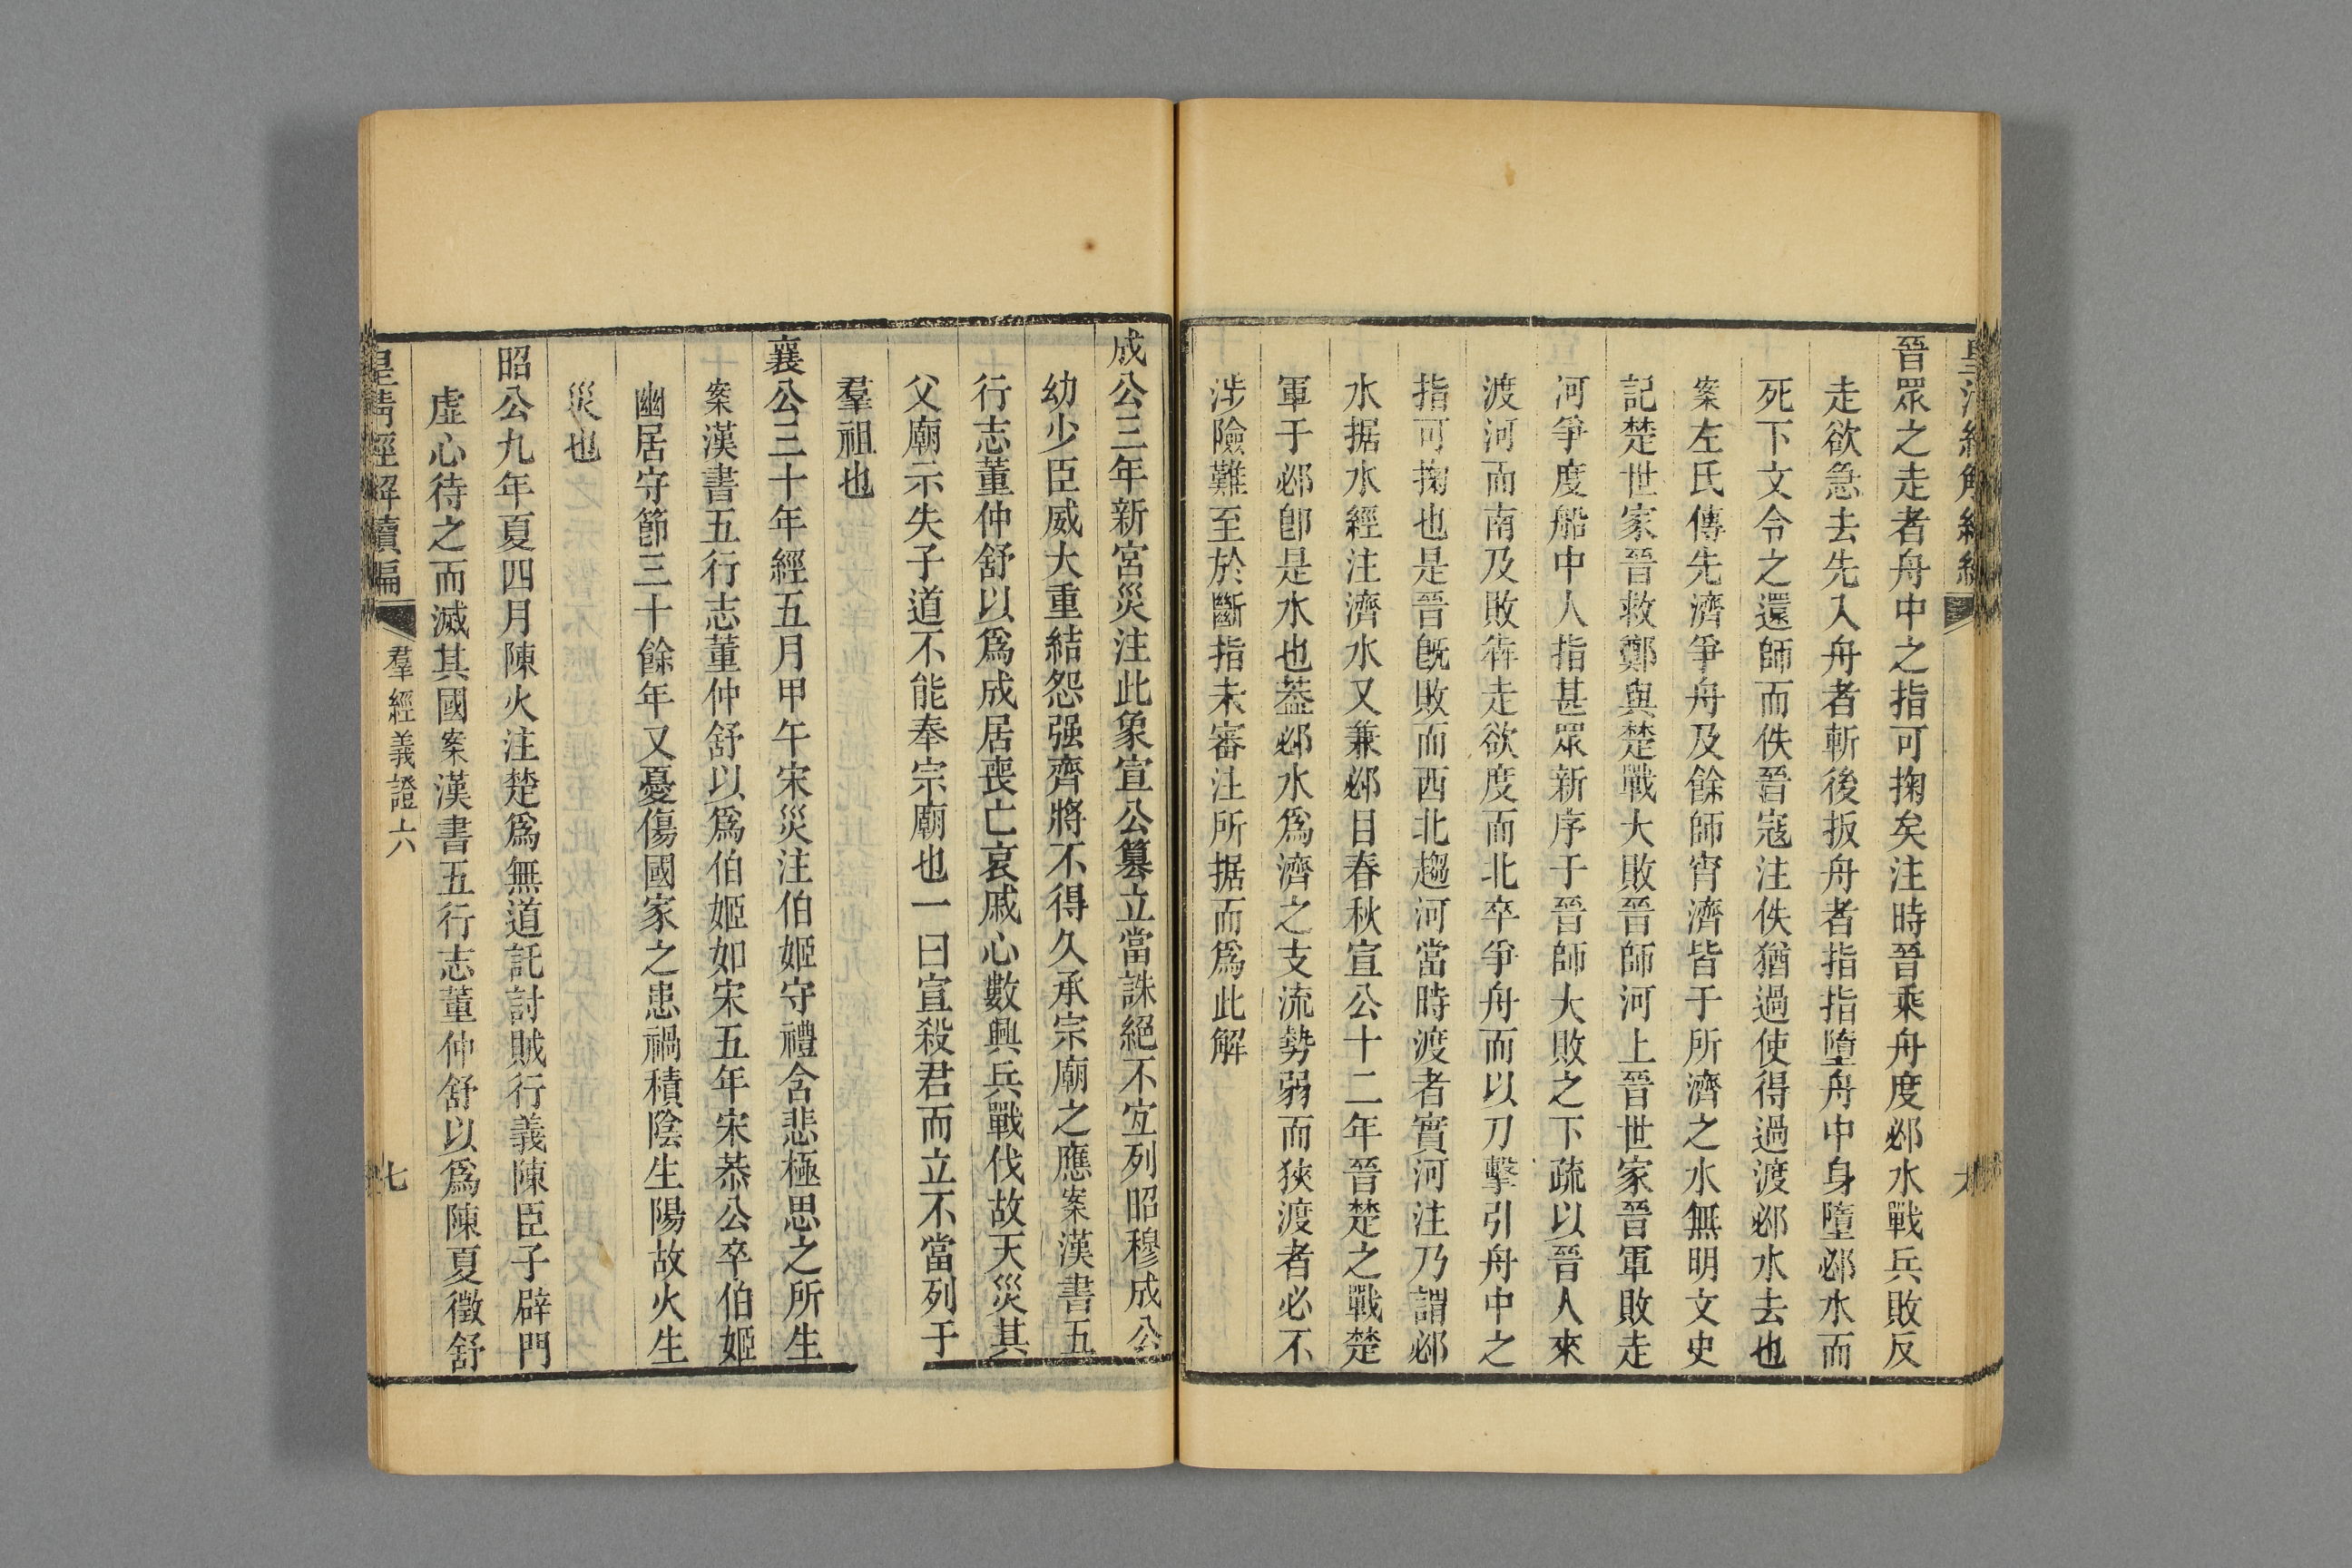 晉眾之走者舟中之指可掬矣注時晉乘舟度邲水戰兵敗反
走欲急去先入舟者斬後扳舟者指指墮舟中身墮邲水而
死下文令之還師而佚晉寇注佚猶過使得過渡邲水去也
案左氏傳先濟爭舟及餘師宵濟皆于所濟之水無明文史
記楚世家晉救鄭與楚戰大敗晉師河上晉世家晉軍敗走
河爭度船中人指甚眾新序于晉師大敗之下疏以晉人來
渡河而南及敗犇走欲度而北卒爭舟而以刀擊引舟中之
指可掬也是晉旣敗而西北趨河當時渡者實河注乃謂邲
水据水經注濟水又兼邲目春秋宣公十二年晉楚之戰楚
軍于邲卽是水也葢邲水爲濟之支流勢弱而狹渡者必不
涉險難至於斷指未審注所据而爲此解
成公三年新宮災注此象宣公篡立當誅絕不宐列昭穆成公
幼少臣威大重結怨强齊將不得久承宗廟之應案漢書五
行志董仲舒以爲成居喪亡哀戚心數興兵戰伐故天災其
父廟示失子道不能奉宗廟也一曰宣殺君而立不當列于
羣祖也
襄公三十年經五月甲午宋災注伯姬守禮含悲極思之所生
案漢書五行志董仲舒以爲伯姬如宋五年宋恭公卒伯姬
幽居守節三十餘年又憂傷國家之患禍積陰生陽故火生
災也
昭公九年夏四月陳火注楚爲無道託討賊行義陳臣子辟門
虛心待之而滅其國案漢書五行志董仲舒以爲陳夏徵舒
皇清經解續編
羣經義證六
七